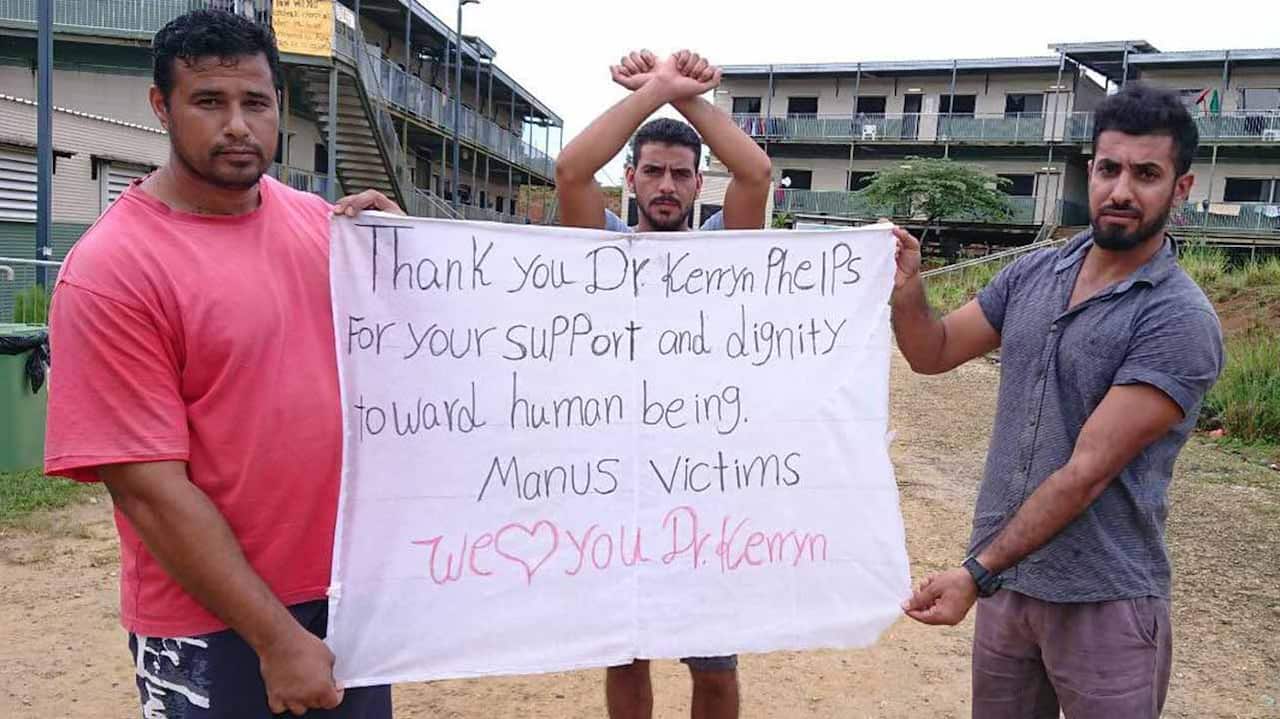 Thank you Dr. Kerryn Phelps
For your support and dignity
toward human being.
Manus Victims
We ♥ you Dr. Kerryn